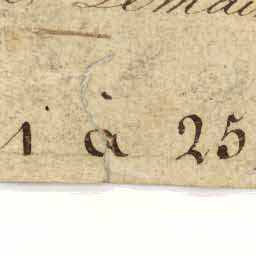 Demai
1 à 25